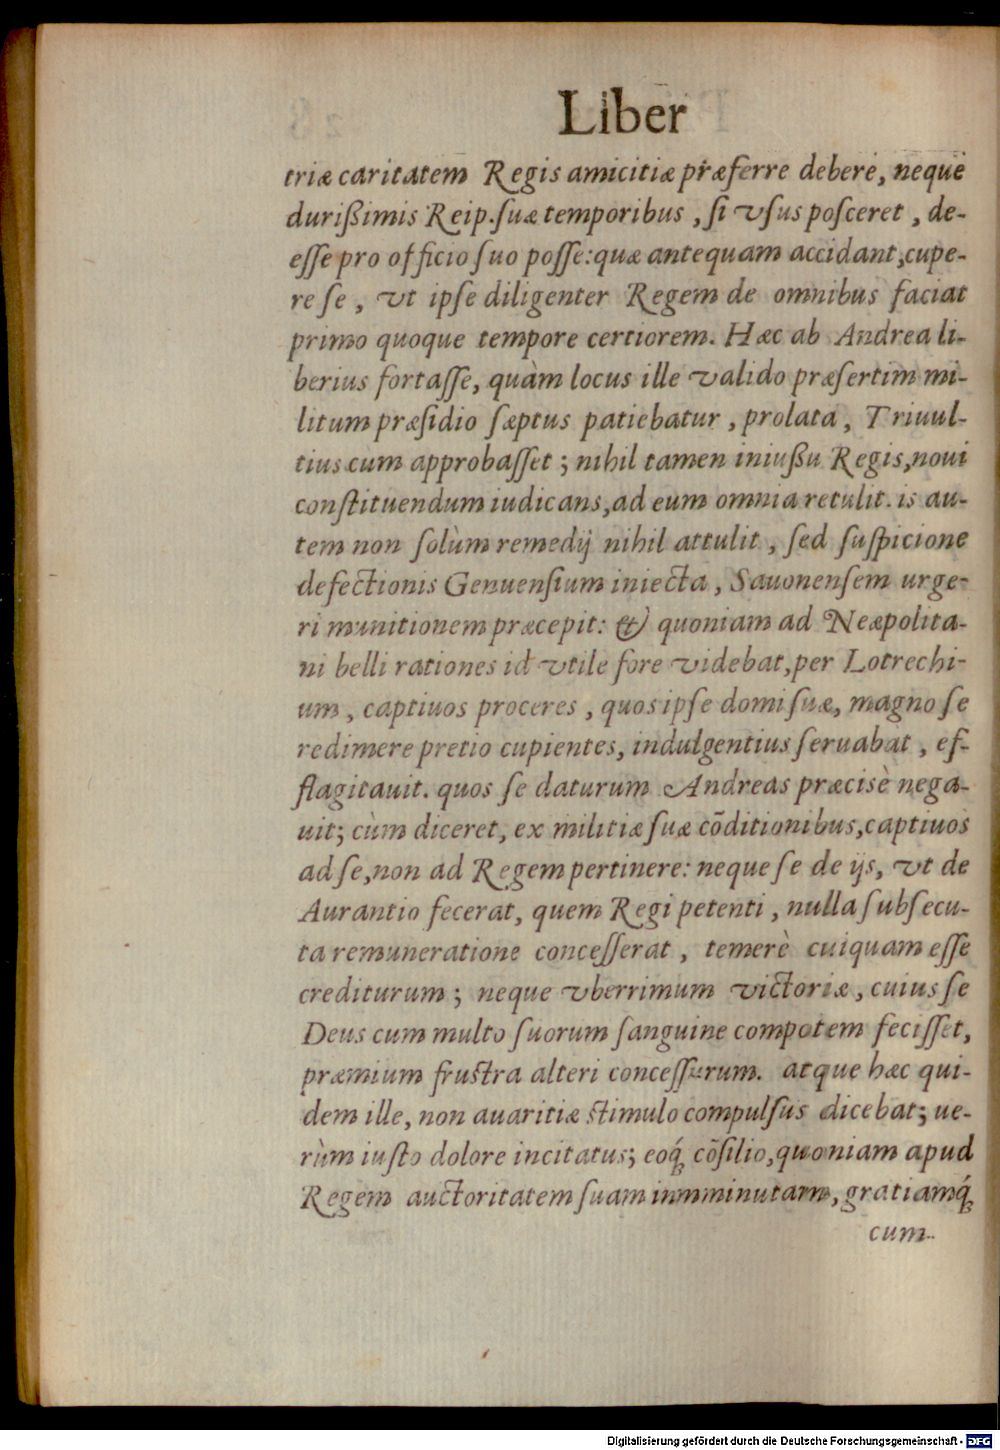 Liber
triæ caritatem Regis amicitiæ præferre debere, neque
durißimis Reip. ſuæ temporibus, ſi vſus poſceret, de-
eſſe pro officio ſuo poſſe: quæ antequam accidant, cupe-
re ſe, vt ipſe diligenter Regem de omnibus faciat
primo quoque tempore certiorem. Hæc ab Andrea li-
berius fortaſſe, quàm locus ille valido præſertim mi-
litum præſidio ſæptus patiebatur, prolata, Triuul-
tius cum approbaſſet; nihil tamen iniußu Regis, noui
conſtituendum iudicans, ad eum omnia retulit. is au-
tem non ſolùm remedij nihil attulit, ſed ſuſpicione
defectionis Genuenſium iniecta, Sauonenſem urge-
ri munitionem præcepit: & quoniam ad Neapolita-
ni belli rationes id vtile fore videbat, per Lotrechi-
um, captiuos proceres, quos ipſe domi ſuæ, magno ſe
redimere pretio cupientes, indulgentius ſeruabat, ef-
flagitauit. quos ſe daturum Andreas præcisè nega-
uit; cùm diceret, ex militiæ ſuæ cõditionibus, captiuos
ad ſe, non ad Regem pertinere: neque ſe de ijs, vt de
Aurantio fecerat, quem Regi petenti, nulla ſubſecu-
ta remuneratione conceſſerat, temerè cuiquam eſſe
crediturum; neque vberrimum victoriæ, cuius ſe
Deus cum multo ſuorum ſanguine compotem feciſſet,
præmium fruſtra alteri conceſſurum. atque hæc qui-
dem ille, non auaritiæ ſtimulo compulſus dicebat; ue-
rùm iuſto dolore incitatus; eoq́; cõſilio, quoniam apud
Regem auctoritatem ſuam imminutam, gratiamq́;
cum
Digitalisierung gefördert durch die Deutsche Forschungsgemeinschaft - DFG